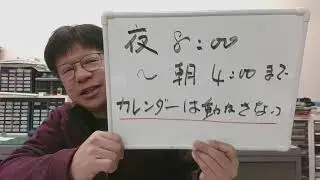 夜8:00
～朝4:00まで
カレンダーは動かさないっ